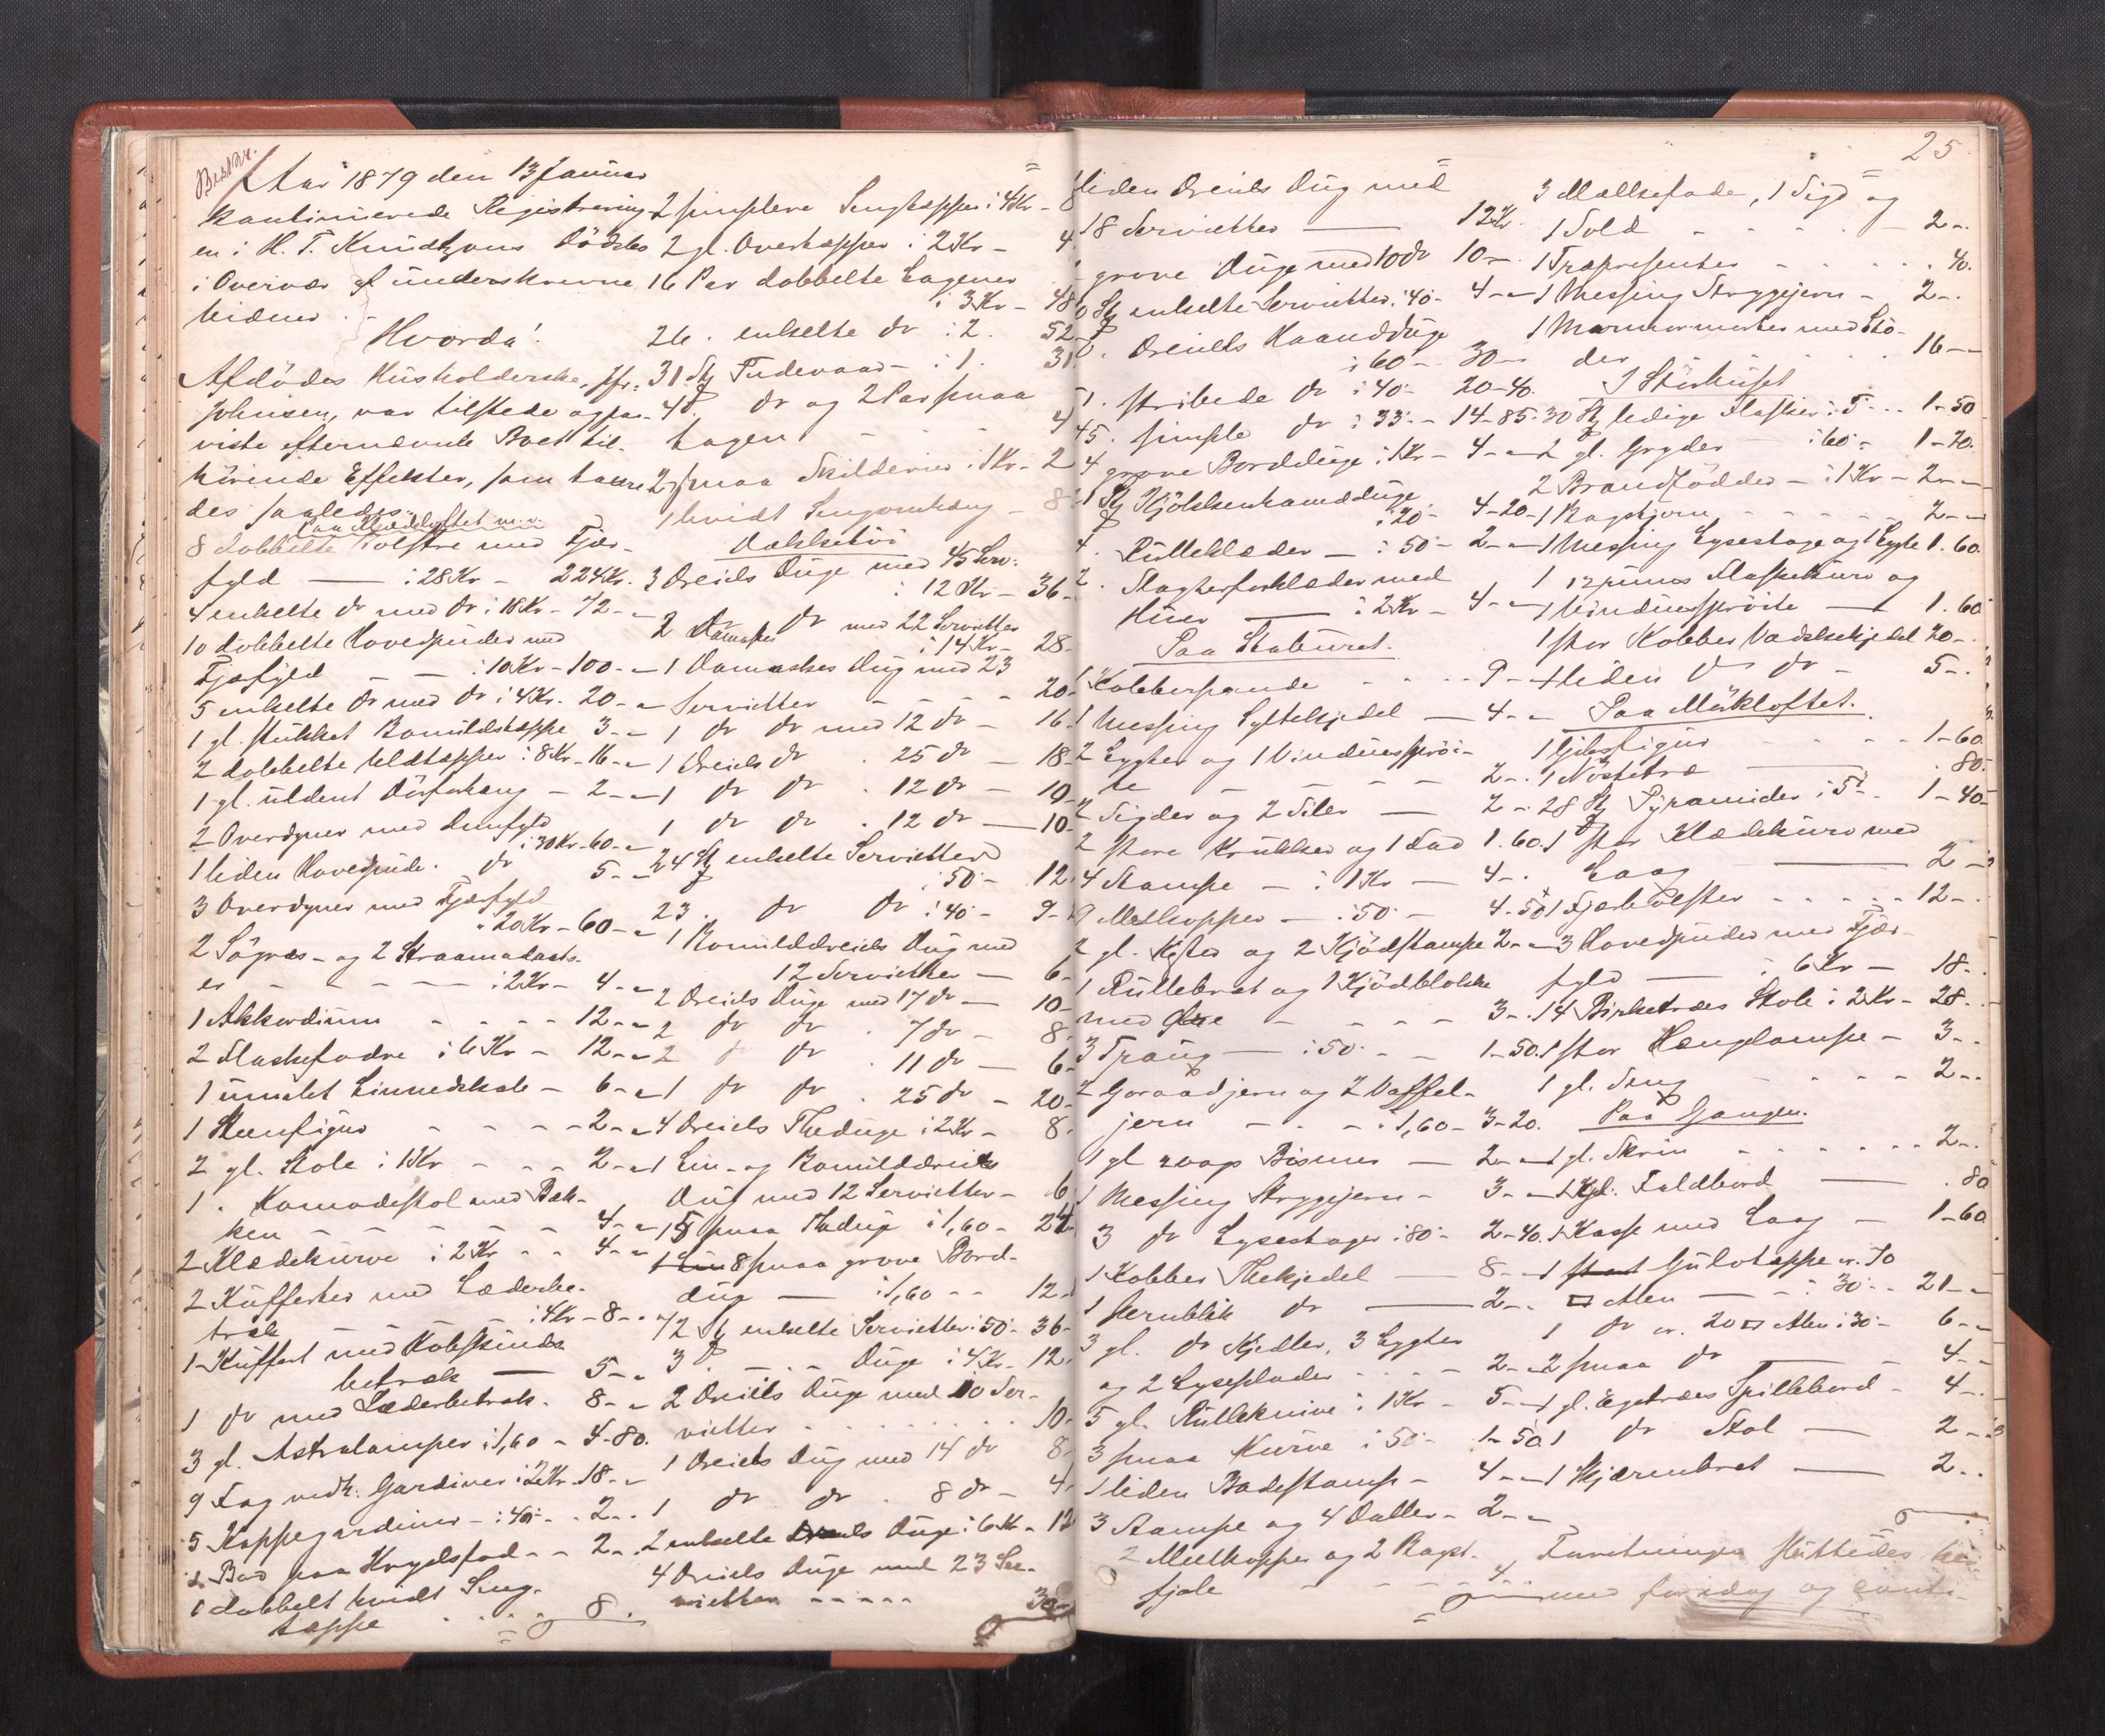 Bestkr.
Aar 1879 den 13 Januar
kontinuerede Registrering-
en i H. T. Knudtzons Dödsbo
i Overvær af underskrevne
Vidner.
Hvorda!
Afdödes Husholderske, Jfr.
Johnsen, var tilstede og paa-
viste efternævnte Boet til-
hörende Effekter, som taxere-
des saaledes.
Paa Mørkloftet m.v.
8 dobbelte Bolstre med Fjær-
fyld — : 28 Kr - 224 Kr.
4 enkelte do med do : 18 Kr - 72 - "
10 dobbelte Hovedpuder med
Fjærfyld - - : 10 Kr - 100 - "
5 enkelte do med do : 4 Kr. 20 - "
1 gl. stukket Bomuldstæppe 3 - "
2 dobbelte Uldtæpper : 8 Kr - 16 - "
1 gl. uldent Dörforhæng - 2 - "
2 Overdyner med Duunfyld
: 30 Kr - 60 - "
1 liden Hovedpude. do 5 - "
3 Overdyner med Fjærfyld
: 20 Kr - 60 - "
2 Sögræs- og 2 Straamadrads-
er - - - - : 2 Kr - 4 - "
1 Akkordium - - - - 12 - "
2 Flaskefodre : 6 Kr - 12 - "
1 umalet Linnedskab - 6 - "
1 Steenfigur - - - - 2 - "
2 gl. Stole : 1 Kr - - - 2 - "
1 . Komodestol med Bæk-
ken - - - - - - 4 - "
2 Klædekurve : 2 Kr - - 4 - "
2 Kufferter med Læderbe-
træk - - - : 4 Kr - 8 - "
1 Kuffert med Kobskinds-
betræk — 5 - "
1 do med Læderbetræk - 8 - "
3 gl. Astralamper : 1,60 - 4-80.
9 Fag vedh. Gardiner : 2 Kr 18 - "
5 Kappegardiner - : 40 - - 2 - "
Bad paa Krydsfod - - 2 - "
1 dobbelt hvidt Seng-
tæppe - - - - 8.
2 simplere Sengtæpper : 4 Kr - 8
2 gl. Overtæpper : 2 Kr - 4.
16 Par dobbelte Lagener
: 3 Kr - 48
26 . enkelte do : 2. 52
31 Stk Pudevaar - : 1. 31.
4 do. do og 2 Par smaa
Lagen - - - 4
2 smaa Skilderier : 1 Kr - 2
1 hvidt Sengomhæng - 8
Dækketöi
3 Dreiels Duge med 45 Serv:
: 12 Kr - 36 -
2 do do med 22 Servietter
: 14 Kr - 28 -
1 Damaskes Dug med 23
Servietter - - - - 20 -
1 do do med 12 do - 16
1 Dreiels do . 25 do - 18 -
1 do do . 12 do - 10 -
1 do do . 12 do — 10 -
24 Stk enkelte Servietter
: 50 - 12
23 . do do : 40 - 9 -
1 Bomulddreiels Dug med
12 Servietter — 6 -
2 Dreiels Duge med 17 do — 10 -
2 do do . 7 do - 8 -
2 do do . 11 do — 6 -
1 do do . 25 do - 20 -
4 Dreiels Theduge : 2 Kr - 8 -
1 Lin- og Bomulddreiels
Dug med 12 Servietter - 6
15 smaa Theduge : 1,60 - 24
8 smaa grove Bord-
duge — : 1,60 - - 12
72 Stk enkelte Servietter : 50 - 36 -
3 . — . - Duge : 4 Kr - 12.
2 Dreiels Duge med 10 Ser-
vietter - - - - - 10 -
1 Dreiels Dug med 14 do 8 -
1 do do . 8 do - 4.
2 enkelte Dreiels Duge : 6 Kr - 12
4 Dreiels Duge med 23 Ser-
vietter - - - - - 30
25
1 liden Dreiels Dug med
18 Servietter — 12 Kr.
grove Duge med 10 do 10 - "
Stk enkelte Servietter : 40 - 4 - "
Dreiels Haandduge
: 60 - 30 - "
51 . stribede do : 40 - 20-40.
45 . simple do : 33 - - 14-85.
4 grove Bordduge : 1 Kr - 4 - "
Stk Kjökkenhaandduge
: 20 - 4-20 -
4 . Rulleklæder — : 50 - 2 - "
2 . Slagterforklæder med
Huer — : 2 Kr - 4 - "
Paa Staburet.
1 Kobberpande - - - - 9 - "
1 Messing Syltekjedel — 4 - "
2 Lygter og 1 Vinduesspröi-
te - - - - - 2 - .
2 Sigder og 2 Siler — 2 - .
2 store Krukker og 1 Fad 1. 60.
4 Stampe - : 1 Kr — 4 - .
9 Melkopper - : 50 - 4-50
2 gl. Kister og 2 Kjödstampe 2 - "
1 Rullebret og 1 Kjödblokke
med Öxe - - - - 3 - .
3 Traug — : 50 - - 1-50.
2 Goraadjern og 2 Vaffel-
jern - - - : 1,60 - 3-20.
1 gl 20 ags Bismer — 2 - "
1 Messing Strygejern - 3 - "
3 do Lysestager : 80 - 2-40.
1 Kobber Thekjedel — 8 - "
1 Jernblik do — 2 - .
3 gl. do Kjedler, 3 Lygter
og 2 Lyseplader - - - - 2 - "
5 gl. Rulleknive : 1 Kr - 5 - "
3 smaa Kurve : 50 - 1-50.
1 liden Badestamp - 4 - "
3 Stampe og 4 Daller - 2 - "
2 Melkopper og 2 Bagst-
fjole - - - - 4
3 Mælkefade, 1 Sigd og
1 Sold - - - - - 2 - .
1 Træpresenter - - - - - 40.
1 Messing Strygejern - 2 - .
1 Marmormorter med Stö-
der - - - - - 16 - "
I Störhuset
30 Stk ledige Flasker : 5 - - 1-50
2 gl. Gryder - : 60 - 1-20.
2 Brandfödder - : 1 Kr - 2 - "
1 Bagstjern - - - - - 2 - "
1 Messing Lysestage og 1 Lygte 1. 60.
1 12 rums Flaskekurv og
1 Vinduesspröite — 1. 60
1 stor Kobber Vadskekjedel 20 - .
1 liden do do - 5 - .
Paa Mörkloftet.
1 Gibsfigur - - - - 1-60
1 Nöstetræ — . 80.
28 Stk Pyramider : 5 - . 1-40
1 stor Klædekurv med
Laag — 2 - "
1 Fjærbolster - - - - - 12 - .
3 Hovedpuder med Fjær-
fyld — : 6 Kr — 18 -
14 Birketræes Stole : 2 Kr - 28 -
1 stor Hænglampe - 3 - .
1 gl. Seng - - - - 2 - .
Paa Gangen.
1 gl. Skrin - - - - - - 2 - .
1 gl. Foldbord — . 80
1 Kasse med Laag — 1-60.
1 Gulvtæppe cr. 70
□ Alen — - : 30 - - 21 - "
1 do cr. 20 □ Alen : 30 - 6 - "
2 smaa do — - 4 - "
1 gl. Egetræes Spillebord - 4 - .
1 do Stol — 2 - "
1 Skjærmbret — 2 - .
Forretningen sluttedes her-
med foridag og conti-